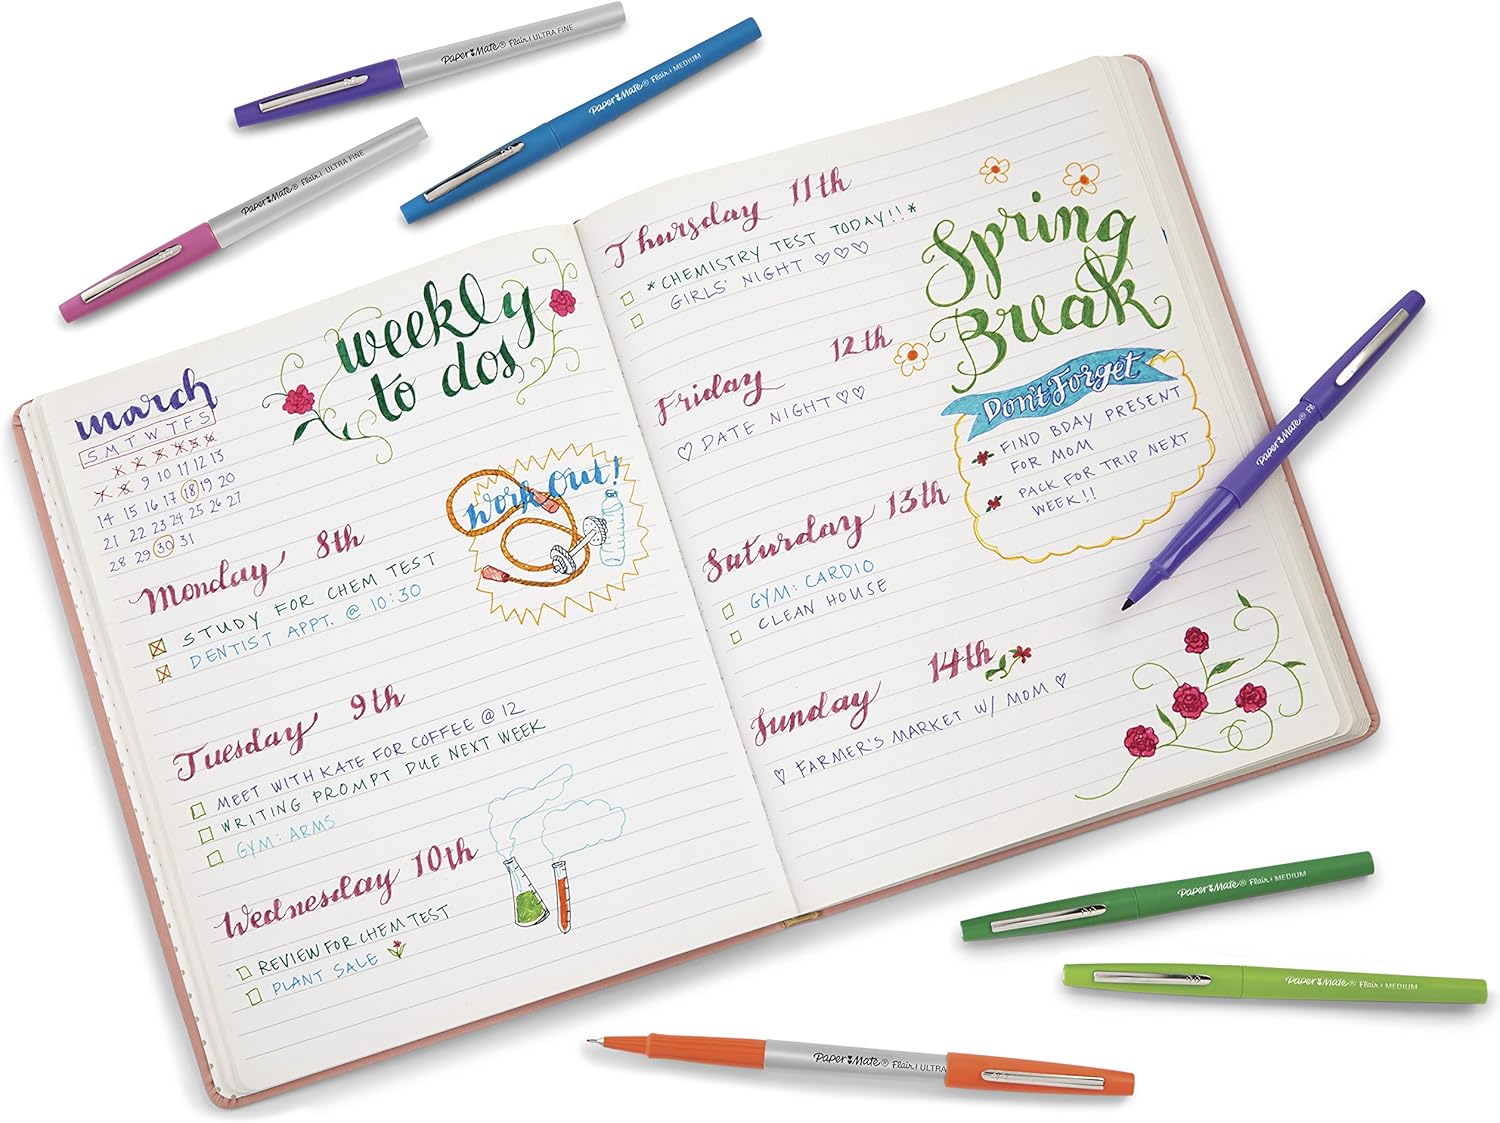 Paper Mate® Flair | ULTRA FINE
Paper Mate® Flair | MEDIUM
Paper Mate® Flair | ULTRA FINE
weekly
to dos
march
S M T W T F S
9 10 11 12 13
14 15 16 17 18 19 20
21 22 23 24 25 26 27
28 29 30 31
Work Out!
Monday 8th
STUDY FOR CHEM TEST
DENTIST APPT. @ 10:30
Tuesday 9th
MEET WITH KATE FOR COFFEE @ 12
WRITING PROMPT DUE NEXT WEEK
GYM: ARMS
Wednesday 10th
REVIEW FOR CHEM TEST
PLANT SALE
Thursday 11th
*CHEMISTRY TEST TODAY!!*
GIRLS' NIGHT ♡♡♡
Friday 12th
♡ DATE NIGHT ♡♡
Saturday 13th
GYM: CARDIO
CLEAN HOUSE
Sunday 14th
♡ FARMER'S MARKET W/ MOM ♡
Spring
Break
Don't Forget
FIND BDAY PRESENT
FOR MOM
PACK FOR TRIP NEXT
WEEK!!
Paper Mate® Fl
Paper Mate® Flair | MEDIUM
Paper Mate® Flair | MEDIUM
Paper Mate® Flair | ULTRA